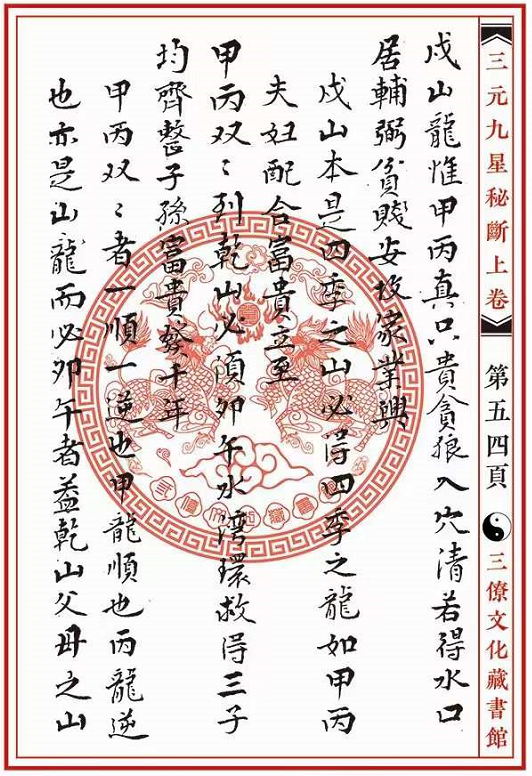 《三元九星秘斷上卷》 第五四頁 三僚文化藏書館
戍山龍惟甲丙真只貴貪狼入穴清若得水口
居輔弼貧賤安故家業興
戍山本是四季之山必得四季之龍如甲丙
夫妇配合富貴立至
甲丙双〻列乾山必須卯午水湾環救得三子
均齊整子孫富貴發千年
甲丙双〻者一順一逆也甲龍順也丙龍逆
也亦是山龍而必卯午者盖乾山父母之山